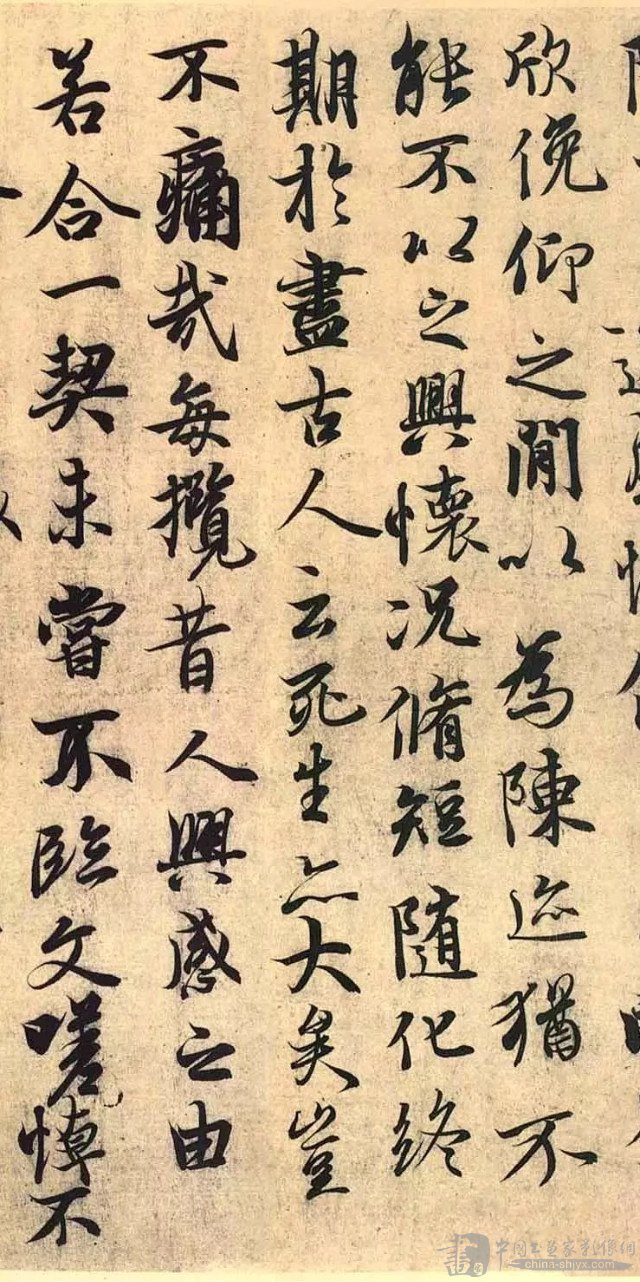 欣俛仰之閒以為陳迹猶不
能不以之興懷況脩短隨化終
期於盡古人云死生亦大矣豈
不痛哉每攬昔人興感之由
若合一契未嘗不臨文嗟悼不
china-shjyx.com